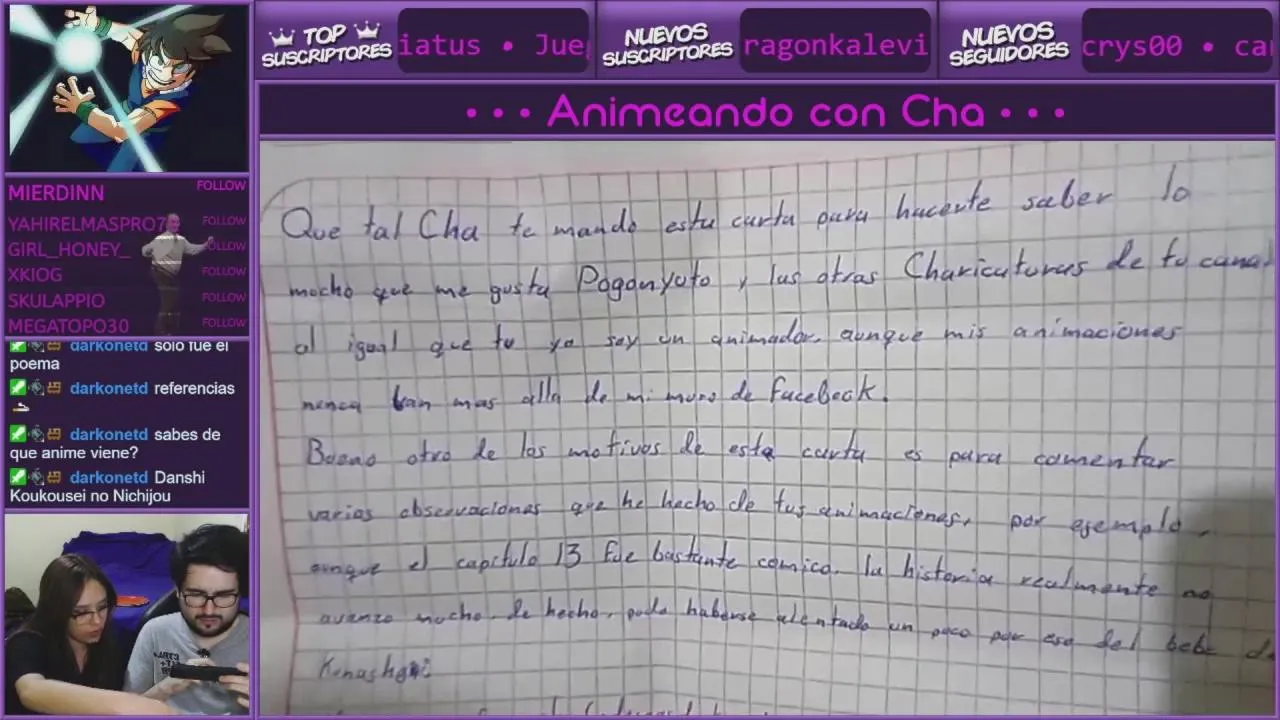 TOP SUSCRIPTORES
iatus • Jue
NUEVOS SUSCRIPTORES
ragonkalevi
NUEVOS SEGUIDORES
crys00 • ca
• • • Animeando con Cha • • •
MIERDINN FOLLOW
YAHIRELMASPRO7 FOLLOW
GIRL_HONEY_ FOLLOW
XKIOG FOLLOW
SKULAPPIO FOLLOW
MEGATOPO30 FOLLOW
darkonetd solo fue el
poema
darkonetd referencias
darkonetd sabes de
que anime viene?
darkonetd Danshi
Koukousei no Nichijou
Que tal Cha te mando esta carta para hacerte saber lo
mocho que me gusta Poganyoto y las otras Charicaturas de tu canal
al igual que tu yo soy un animador, aunque mis animaciones
nunca van mas alla de mi muro de Facebook.
Bueno otro de los motivos de esta carta es para comentar
varias observaciones que he hecho de tus animaciones, por ejemplo,
aunque el capitulo 13 fue bastante comico, la historia realmente no
avanzo mucho, de hecho, pudo haberse alentado un poco por eso del bebe de